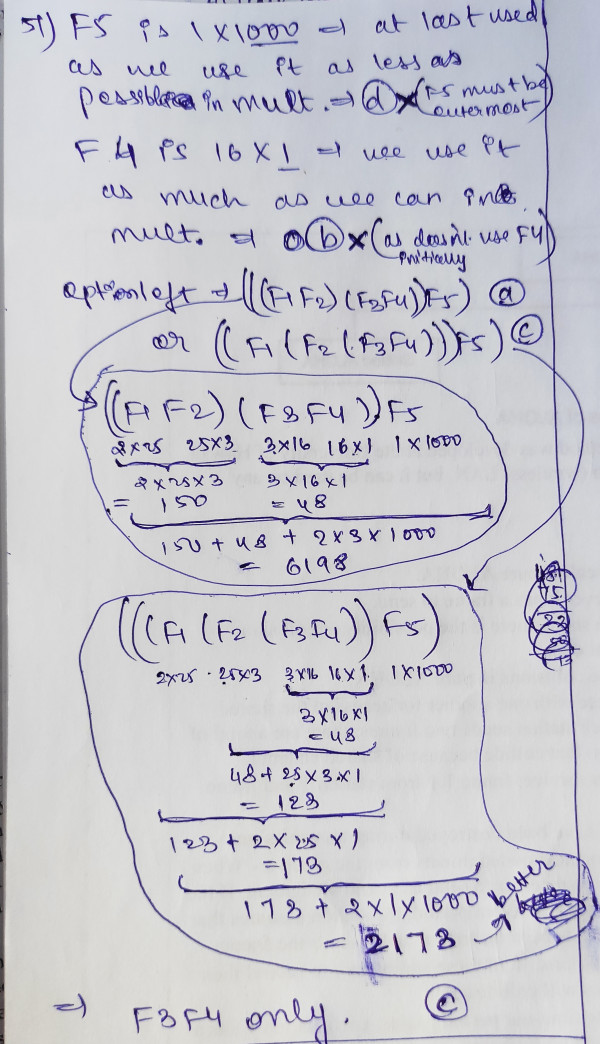 51) F5 is 1 x 1000 ⇒ at last used
as we use it as less as
possible in mult. ⇒ (d) × (F5 must be
outermost)
F4 is 16 x 1 ⇒ we use it
as much as we can in
mult. ⇒ (b) × (as doesn't use F4
initially)
option left ⇒ (((F1 F2) (F3 F4)) F5) (a)
or ((F1 (F2 (F3 F4))) F5) (c)
((F1 F2) (F3 F4)) F5
2x25 25x3 3x16 16x1 1x1000
2x25x3 3x16x1
= 150 = 48
150 + 48 + 2x3x1000
= 6198
(((F1 (F2 (F3 F4)) F5)
2x25 25x3 3x16 16x1 1x1000
3x16x1
= 48
48 + 25x3x1
= 123
123 + 2x25x1
= 173
173 + 2x1x1000
= 2173 better
⇒ F3F4 only. (c)